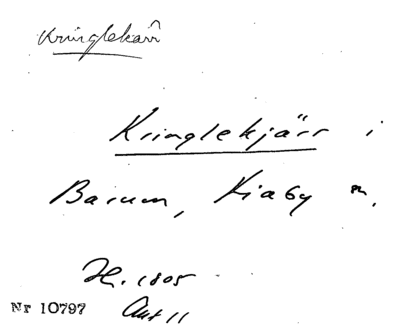 Kringlekärr
Kringlekjärr i
Barum, Kiaby sn.
H. 1805
Nr 10797 Akt 11